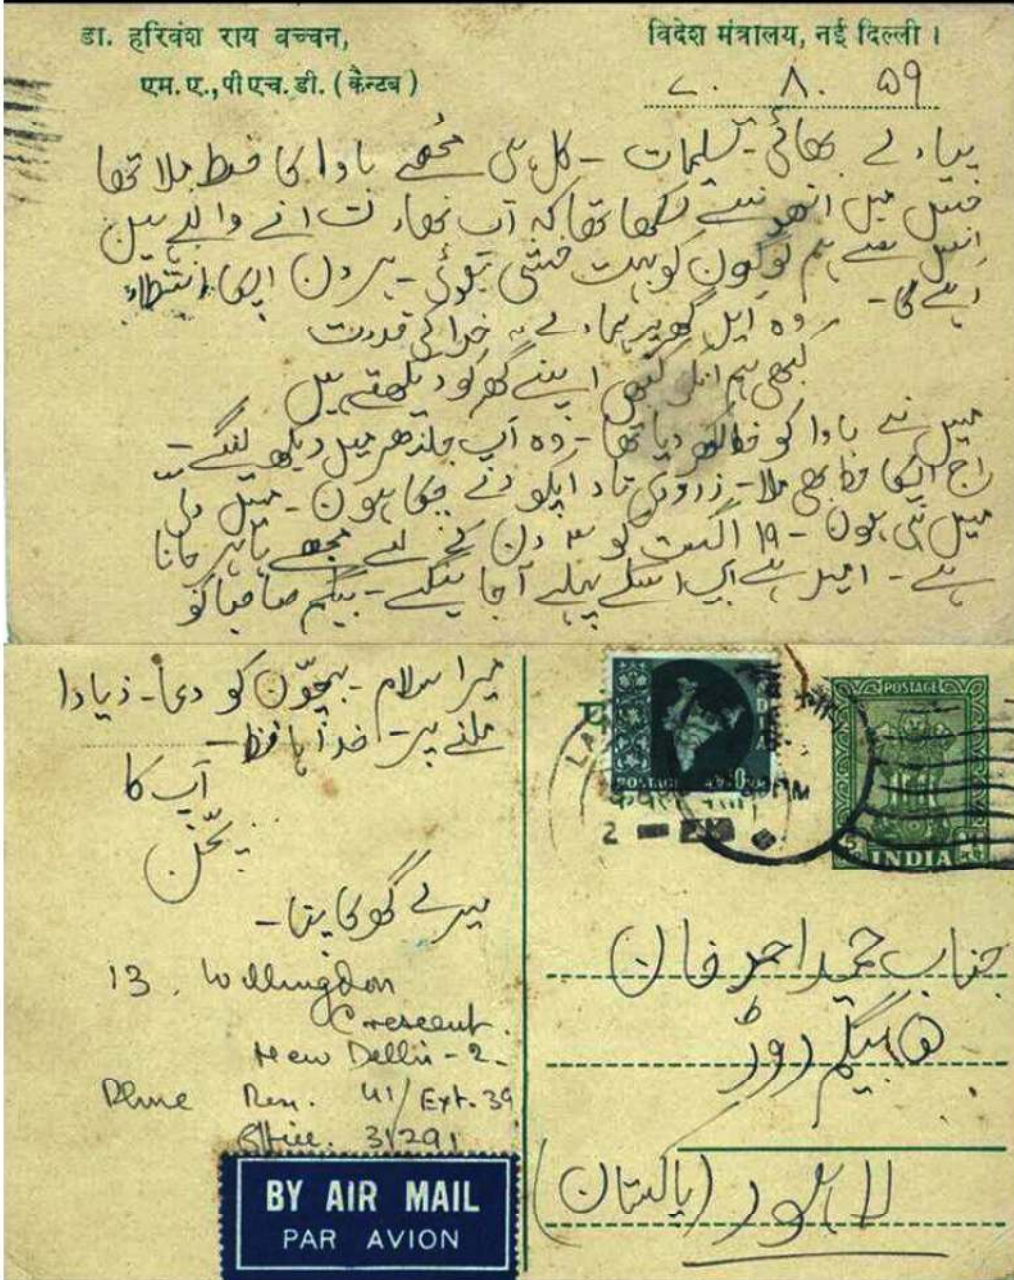 डा. हरिवंश राय बच्चन,
एम.ए.,पी एच.डी. (कैन्टब)
विदेश मंत्रालय, नई दिल्ली ।
۷. ۸. ۵۹
بھائی - تسلیمات - کل ہی مجھے باوا کا خط ملا تھا
میں لکھا تھا کہ آپ بھارت انے والے ہیں
سے ہم لوگوں کو بہت ہوئی - ہر دن اپکا انتظار
رہے گا -
وہ ایں گھر پر ہمارے خدا کی قدرت
کبھی ہم انکو کبھی اپنے گھر کو دیکھتے ہیں
میں نے باوا کو خط لکھ دیا تھا - وہ آپ جلندھر میں دیکھ لنگے -
اج اپکا خط بھی ملا - تار اپکو دے چکا ہون - میں دلی
میں ہی ہون - ۱۹ اگست کو ۳ دن کے لئے مجھے باہر جانا
ہے - امید ہے اپ اسکے پہلے آجاینگے - بیگم صاحبا کو
میرا سلام - بچّوں کو دعا - زیادا
ملنے پر - خدا حافظ -
آپ کا
بچّن
میرے گھر کا پتا -
13, Willingdon
Crescent.
New Delhi - 2.
Phone Res. 41/Ext. 39
Office. 31291
BY AIR MAIL
PAR AVION
POSTAGE
POSTAGE
INDIA
جناب احمد خان
بیگم روڈ
لاہور (پاکستان)